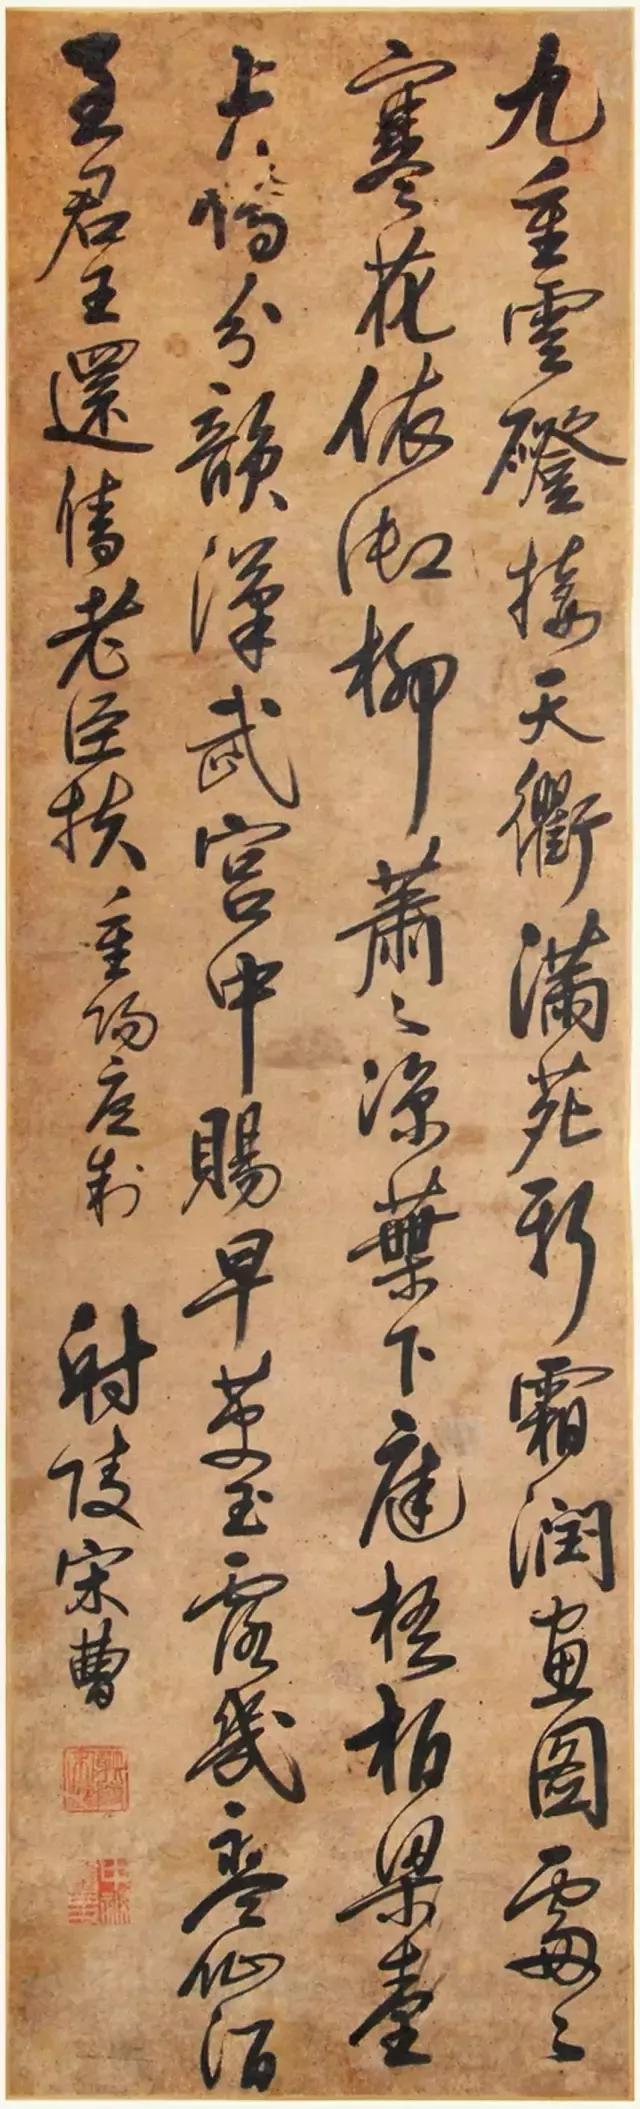 九重雲磴接天衢滿苑新霜潤畫圖處〻
寒花依御柳蕭〻涼葉下庭梧柏梁臺
分韻漢武宮中賜早萸玉露幾仙酒
至君王還倩老臣扶 重陽應制 射陵宋曹